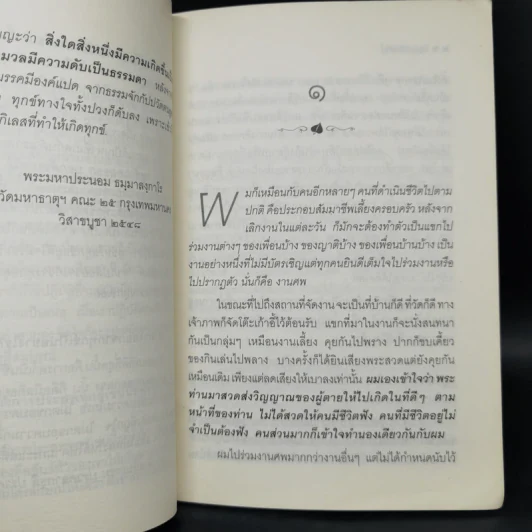 ญะว่า สิ่งใดสิ่งหนึ่งมีความเกิดขึ้น
มวลมีความดับเป็นธรรมดา หลังจาก
มรรคมีองค์แปด จากธรรมจักกัปปวัตน
ทุกข์ทางใจทั้งปวงก็ดับลง เพราะ
กิเลสที่ทำให้เกิดทุกข์.
พระมหาประนอม ธมฺมาลงฺกาโร
วัดมหาธาตุฯ คณะ ๒๕ กรุงเทพมหานคร
วิสาขบูชา ๒๕๔๘
๑
ผมก็เหมือนกับคนอีกหลายๆ คนที่ดำเนินชีวิตไปตาม
ปกติ คือประกอบสัมมาชีพเลี้ยงครอบครัว หลังจาก
เลิกงานในแต่ละวัน ก็มักจะต้องทำตัวเป็นแขกไป
ร่วมงานต่างๆ ของเพื่อนบ้าง ของญาติบ้าง ของเพื่อนบ้านบ้าง เป็น
งานอย่างหนึ่งที่ไม่มีบัตรเชิญแต่ทุกคนยินดีเต็มใจไปร่วมงานหรือ
ไปปรากฏตัว นั่นก็คือ งานศพ
ในขณะที่ไปถึงสถานที่จัดงาน จะเป็นที่บ้านก็ดี ที่วัดก็ดี ทาง
เจ้าภาพก็จัดโต๊ะเก้าอี้ไว้ต้อนรับ แขกที่มาในงานก็จะนั่งสนทนา
กันเป็นกลุ่มๆ เหมือนงานเลี้ยง คุยกันไปพราง ปากก็ขบเคี้ยว
ของกินเล่นไปพลาง บางครั้งก็ได้ยินเสียงพระสวดแต่ยังคุยกัน
เหมือนเดิม เพียงแต่ลดเสียงให้เบาลงเท่านั้น ผมเองเข้าใจว่า พระ
ท่านมาสวดส่งวิญญาณของผู้ตายให้ไปเกิดในที่ดีๆ ตาม
หน้าที่ของท่าน ไม่ได้สวดให้คนมีชีวิตฟัง คนที่มีชีวิตอยู่ไม่
จำเป็นต้องฟัง คนส่วนมากก็เข้าใจทำนองเดียวกันกับผม
ผมไปร่วมงานศพมากกว่างานอื่นๆ แต่ไม่ได้กำหนดนับไว้